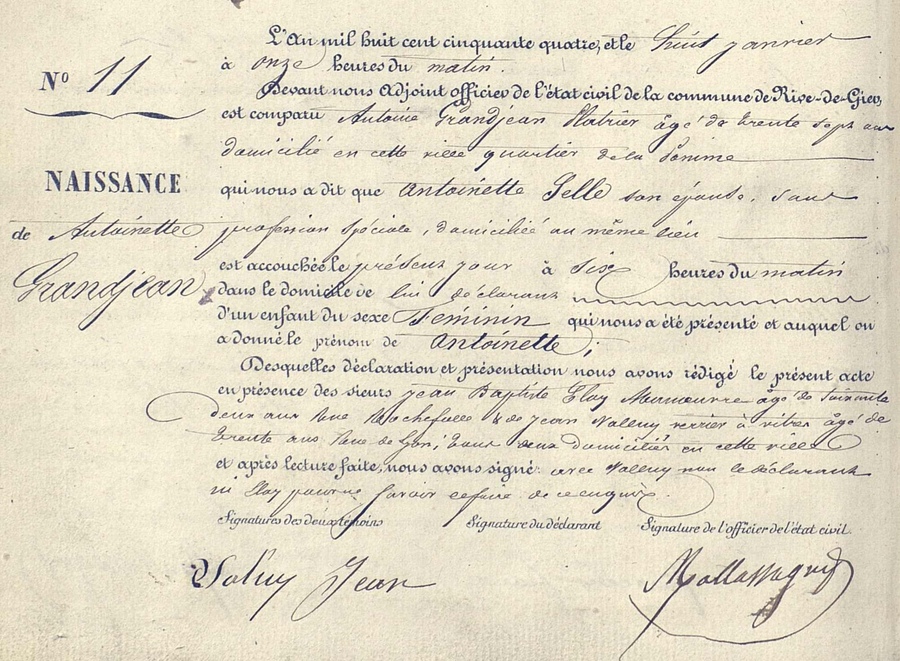 N° 11
NAISSANCE
de Antoinette
Grandjean
L'An mil huit cent cinquante quatre, et le huit janvier
à onze heures du matin.
Devant nous Adjoint officier de l'état civil de la commune de Rive-de-Gier,
est comparu Antoine Grandjean âgé de trente sept ans
domicilié en cette ville quartier de la Pomme
qui nous a dit que Antoinette Selle son épouse, sans
profession spéciale, domiciliée au même lieu
est accouchée le présent jour à six heures du matin
dans le domicile de lui déclarant
d'un enfant du sexe Féminin qui nous a été présenté et auquel on
a donné le prénom de Antoinette;
Desquelles déclaration et présentation nous avons rédigé le présent acte
en présence des sieurs jean Baptiste Eloy Manœuvre âgé de soixante
deux ans Rue & de Jean verrier à vitres âgé de
trente ans Rue de Lyon; tous deux domiciliés en cette ville
et après lecture faite, nous avons signé avec non le déclarant
ni Eloy pour ne savoir ce faire de ce enquis.
Signatures des deux témoins Signature du déclarant Signature de l'officier de l'état civil
Jean